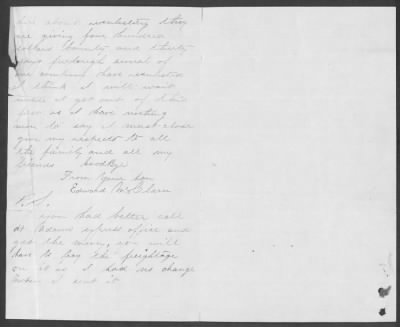 here about reenlisting they
are giving four hundred
dollars bounty and thirty
days furlough several of
our company have reenlisted
I think it will want
until I get out of this
first as I have nothing
more to say I must close
give my respects to all
the family and all my
friends Goodbye
From Your Son
Edward
P.S.
you had better call
at Adams express office and
get the money, you will
have to pay the freightage
on it as I had no change
when I sent it